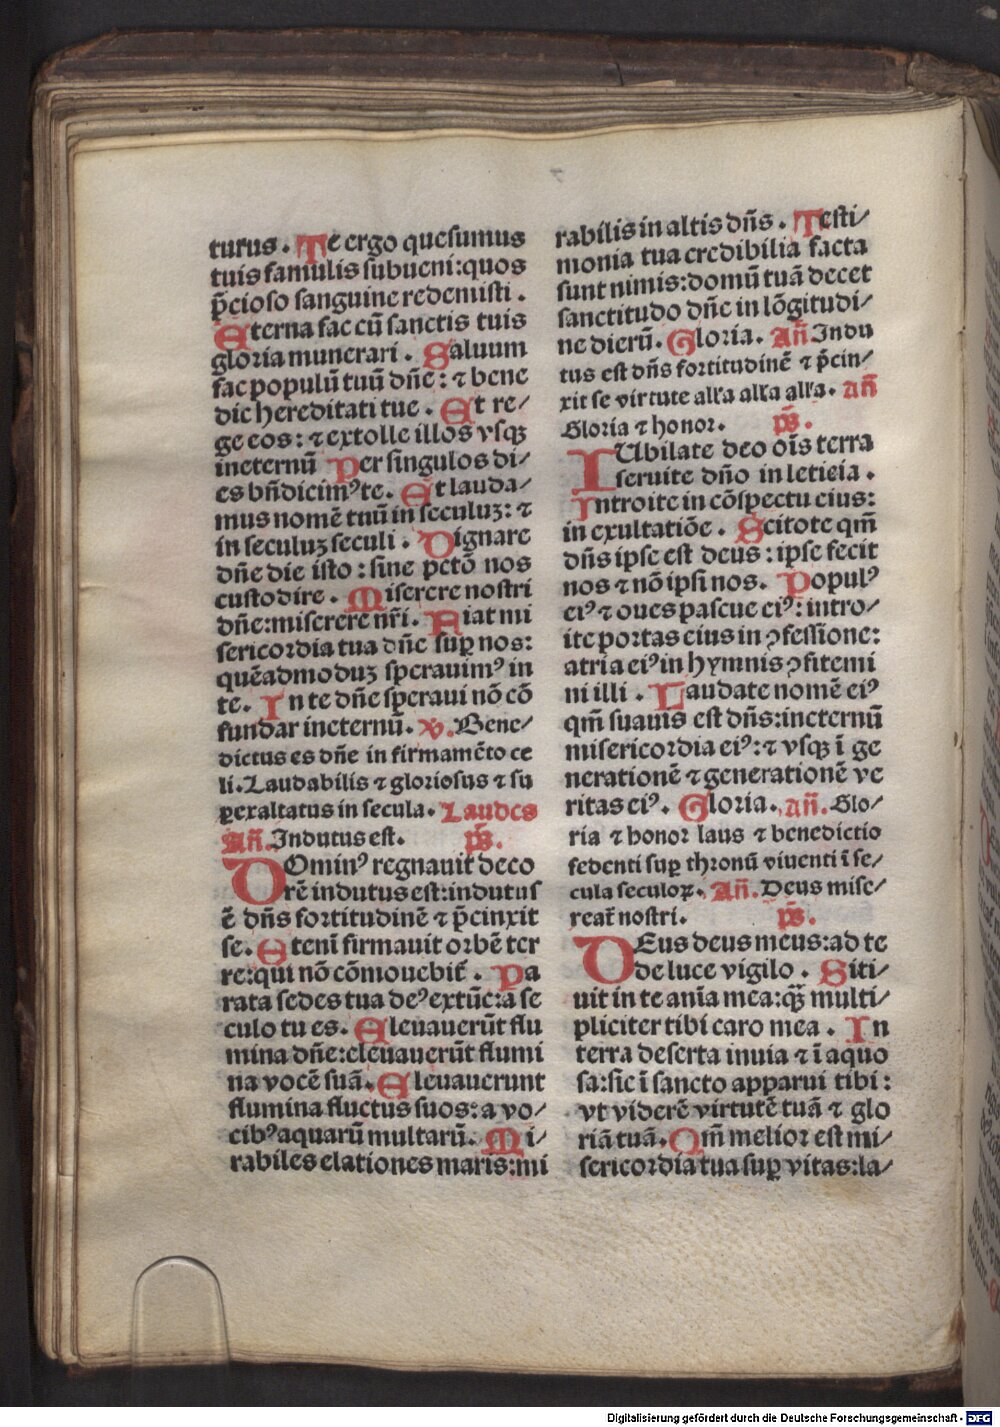 turus. Te ergo quesumus
tuis famulis subueni:quos
p̄cioso sanguine redemisti.
Eterna fac cū sanctis tuis
gloria munerari. Saluum
fac populū tuū dñe: ⁊ bene
dic hereditati tue. Et re/
ge eos: ⁊ extolle illos vsqꝫ
ineternū Per singulos di/
es bñdicimꝰ te. Et lauda/
mus nomē tuū in seculuꝫ: ⁊
in seculuꝫ seculi. Dignare
dñe die isto: sine pctō nos
custodire. Miserere nostri
dñe:miserere nr̄i. Fiat mi
sericordia tua dñe suꝑ nos:
quēadmoduꝫ sperauimꝰ in
te. In te dñe speraui nō cō
fundar ineternū. ℣. Bene/
dictus es dñe in firmamēto ce
li. Laudabilis ⁊ gloriosus ⁊ su
perexaltatus in secula. Laudes
Añ. Indutus est. ps̄.
DOminꝰ regnauit deco
rē indutus est:indutus
ē dñs fortitudinē ⁊ p̄cinxit
se. Etenī firmauit orbē ter
re:qui nō cōmouebit̄. Pa
rata sedes tua deꝰ extūc:a se
culo tu es. Eleuauerūt flu
mina dñe:eleuauerūt flumi
na vocē suā. Eleuauerunt
flumina fluctus suos:a vo/
cibꝰ aquarū multarū. Mi/
rabiles elationes maris:mi
rabilis in altis dñs. Testi/
monia tua credibilia facta
sunt nimis:domū tuā decet
sanctitudo dñe in lōgitudi/
ne dierū. Gloria. Añ Indu
tus est dñs fortitudinē ⁊ p̄cin/
xit se virtute alľa alľa alľa. Añ
Gloria ⁊ honor. ps̄.
IUbilate deo oīs terra
seruite dño in leticia.
Introite in cōspectu eius:
in exultatiōe. Scitote qm̄
dñs ipse est deus: ipse fecit
nos ⁊ nō ipsi nos. Populꝰ
eiꝰ ⁊ oues pascue eiꝰ: intro/
ite portas eius in ꝯfessione:
atria eiꝰ in hymnis ꝯfitemi
ni illi. Laudate nomē eiꝰ
qm̄ suauis est dñs:ineternū
misericordia eiꝰ:⁊ vsqꝫ ī ge
nerationē ⁊ generationē ve
ritas eiꝰ. Gloria. Añ. Glo/
ria ⁊ honor laus ⁊ benedictio
sedenti suꝑ thronū viuenti ī se/
cula seculoꝝ. Añ. Deus mise/
reat̄ nostri. ps̄.
DEus deus meus:ad te
de luce vigilo. Siti/
uit in te anīa mea:qꝫ̄ multi/
pliciter tibi caro mea. In
terra deserta inuia ⁊ ī aquo
sa:sic ī sancto apparui tibi:
vt viderē virtutē tuā ⁊ glo
riā tuā. Qm̄ melior est mi/
sericordia tua suꝑ vitas:la/
Digitalisierung gefördert durch die Deutsche Forschungsgemeinschaft - DFG